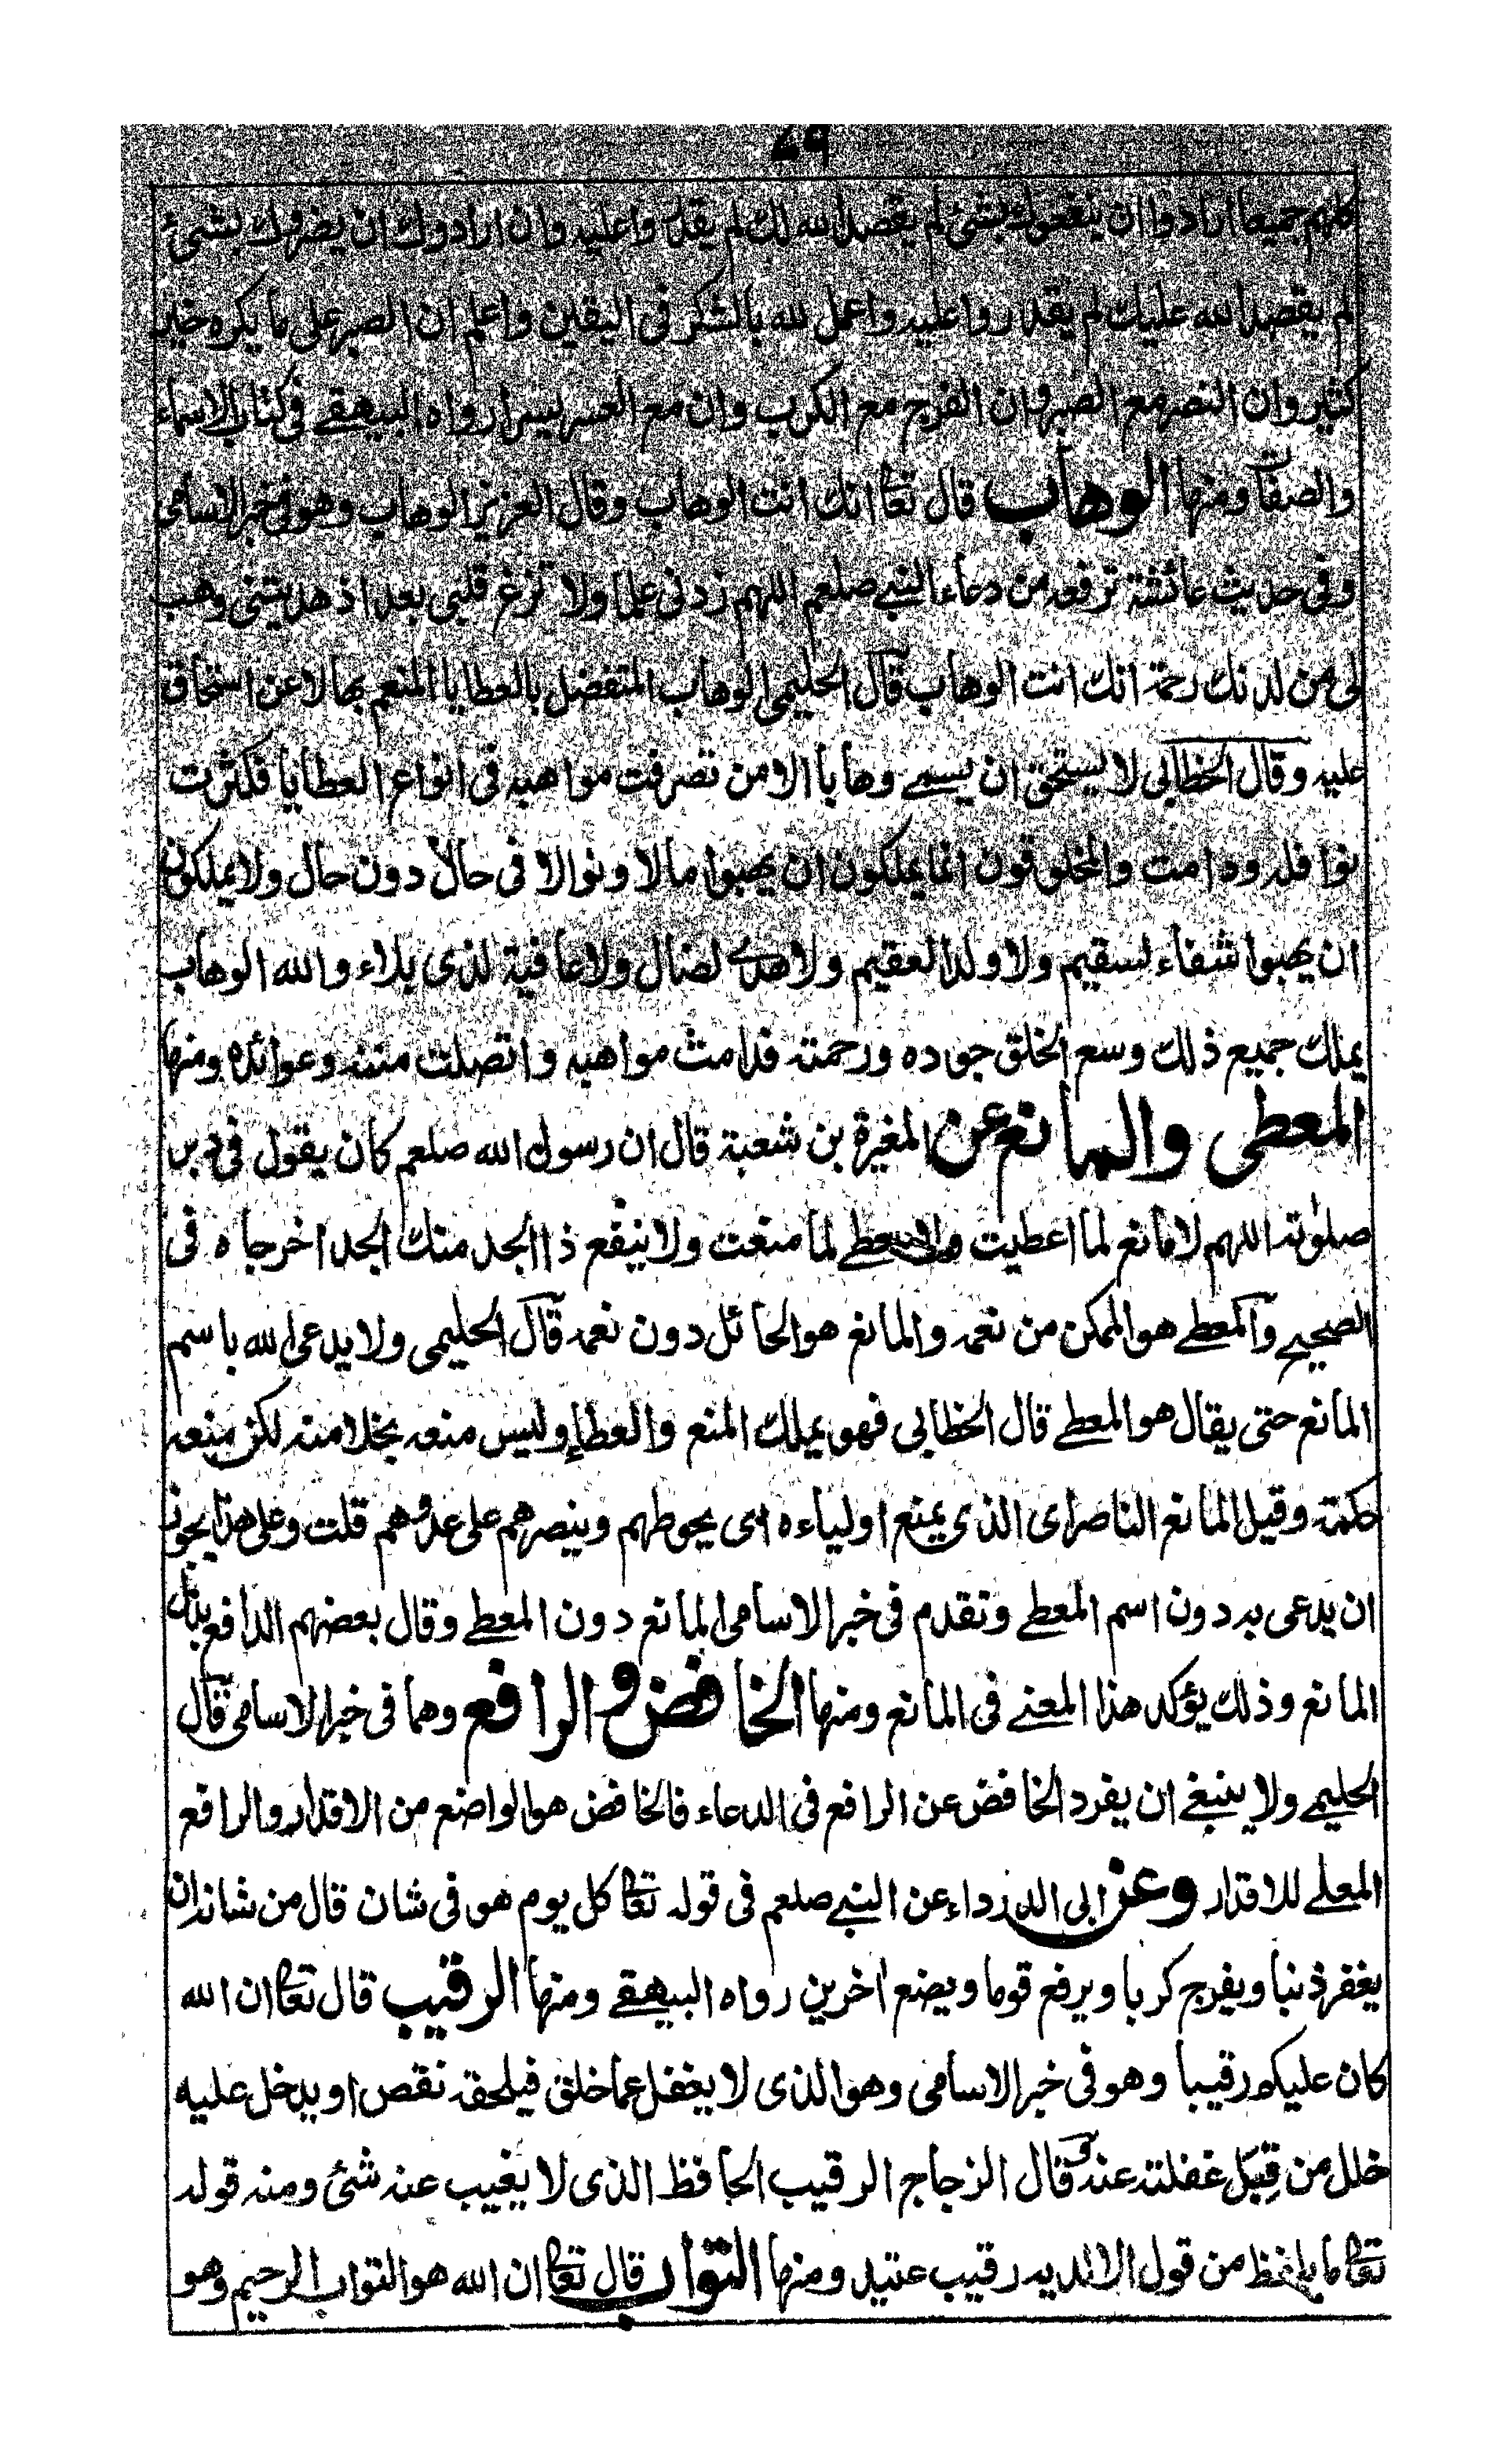 ٤٩
كلهم جميعا ارادوا ان ينفعوك بشئ لم يقصد الله لك لم يقدروا عليه وان ارادوك ان يضروك بشئ
لم يقصد الله عليك لم يقدروا عليه واعمل لله بالشكر فى اليقين واعلم ان الصبر على ما يكره خير
كثير وان النصر مع الصبر وان الفرج مع الكرب وان مع العسر يسرا رواه البيهقے فى كتاب الاسماء
والصفآ ومنها الوهاب قال تعا انك انت الوهاب وقال العزيز الوهاب وهو فى خبر الاسامى
وفى حديث عائشة ترفعه من دعاء النبے صلعم اللهم زدنى علما ولا تزغ قلبى بعد اذ هديتنى وهب
لى من لدنك رحمة انك انت الوهاب قال الحليمى الوهاب المتفضل بالعطايا المنعم بها لا عن استحقاق
عليه وقال الخطابى لا يستحق ان يسمے وهابا الا من تصرفت مواهبه فى انواع العطايا فكثرت
نوافله ودامت والمخلوقون انما يملكون ان يهبوا مالا ونوالا فى حال دون حال ولا يملكون
ان يهبوا شفاء لسقيم ولا ولدا لعقيم ولا هدے لضال ولا عافية لذى بلاء والله الوهاب
يملك جميع ذلك وسع الخلق جوده ورحمته فدامت مواهبه واتصلت مننه وعوائده ومنها
المعطى والمانع عن المغيرة بن شعبة قال ان رسول الله صلعم كان يقول فى دبر
صلوته اللهم لا مانع لما اعطيت ولا معطے لما منعت ولا ينفع ذا الجد منك الجد اخرجاه فى
الصحيح والمعطے هو الممكن من نعمه والمانع هو الحائل دون نعمه قال الحليمى ولا يدعى الله باسم
المانع حتى يقال هو المعطے قال الخطابى فهو يملك المنع والعطاء وليس منعه بخلا منه لكن منعه
حكمة وقيل المانع الناصر اى الذى يمنع اولياءه اى يحوطهم وينصرهم على عدوهم قلت وعلى هذا يجوز
ان يدعى به دون اسم المعطے وتقدم فى خبر الاسامى المانع دون المعطے وقال بعضهم الدافع بدل
المانع وذلك يؤكد هذا المعنے فى المانع ومنها الخافض والرافع وهما فى خبر الاسامى قال
الحليمے ولا ينبغے ان يفرد الخافض عن الرافع فى الدعاء فالخافض هو الواضع من الاقدار والرافع
المعلے للاقدار وعن ابى الدرداء عن النبے صلعم فى قوله تعا كل يوم هو فى شان قال من شانه ان
يغفر ذنبا ويفرج كربا ويرفع قوما ويضع اخرين رواه البيهقے ومنها الرقيب قال تعا ان الله
كان عليكم رقيبا وهو فى خبر الاسامى وهو الذى لا يغفل عما خلق فيلحقه نقص او يدخل عليه
خلل من قِبَل غفلته عنه وقال الزجاج الرقيب الحافظ الذى لا يغيب عنه شئ ومنه قوله
تعا ما يلفظ من قول الا لديه رقيب عتيد ومنها التواب قال تعا ان الله هو التواب الرحيم وهو